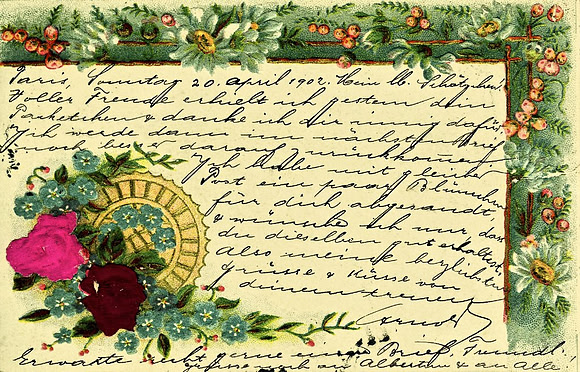 Paris, Sonntag 20. April 1902. Mein lb. Schätzchen!
Voller Freude erhielt ich gestern dein
Packetchen & danke ich dir innig dafür
Ich werde dann im nächst. Brief
noch besser darauf zurückkommen
Ich habe mit gleicher
Post ein paar Blümchen
für dich abgesandt
& wünsche ich nur dass
du dieselben gut erhaltest,
also meine herzlichsten
Grüsse & Küsse von
deinem treuen
Arnold
Erwarte recht gerne einen Brief. Freundl.
Grüsse auch an Albertine & an Alle